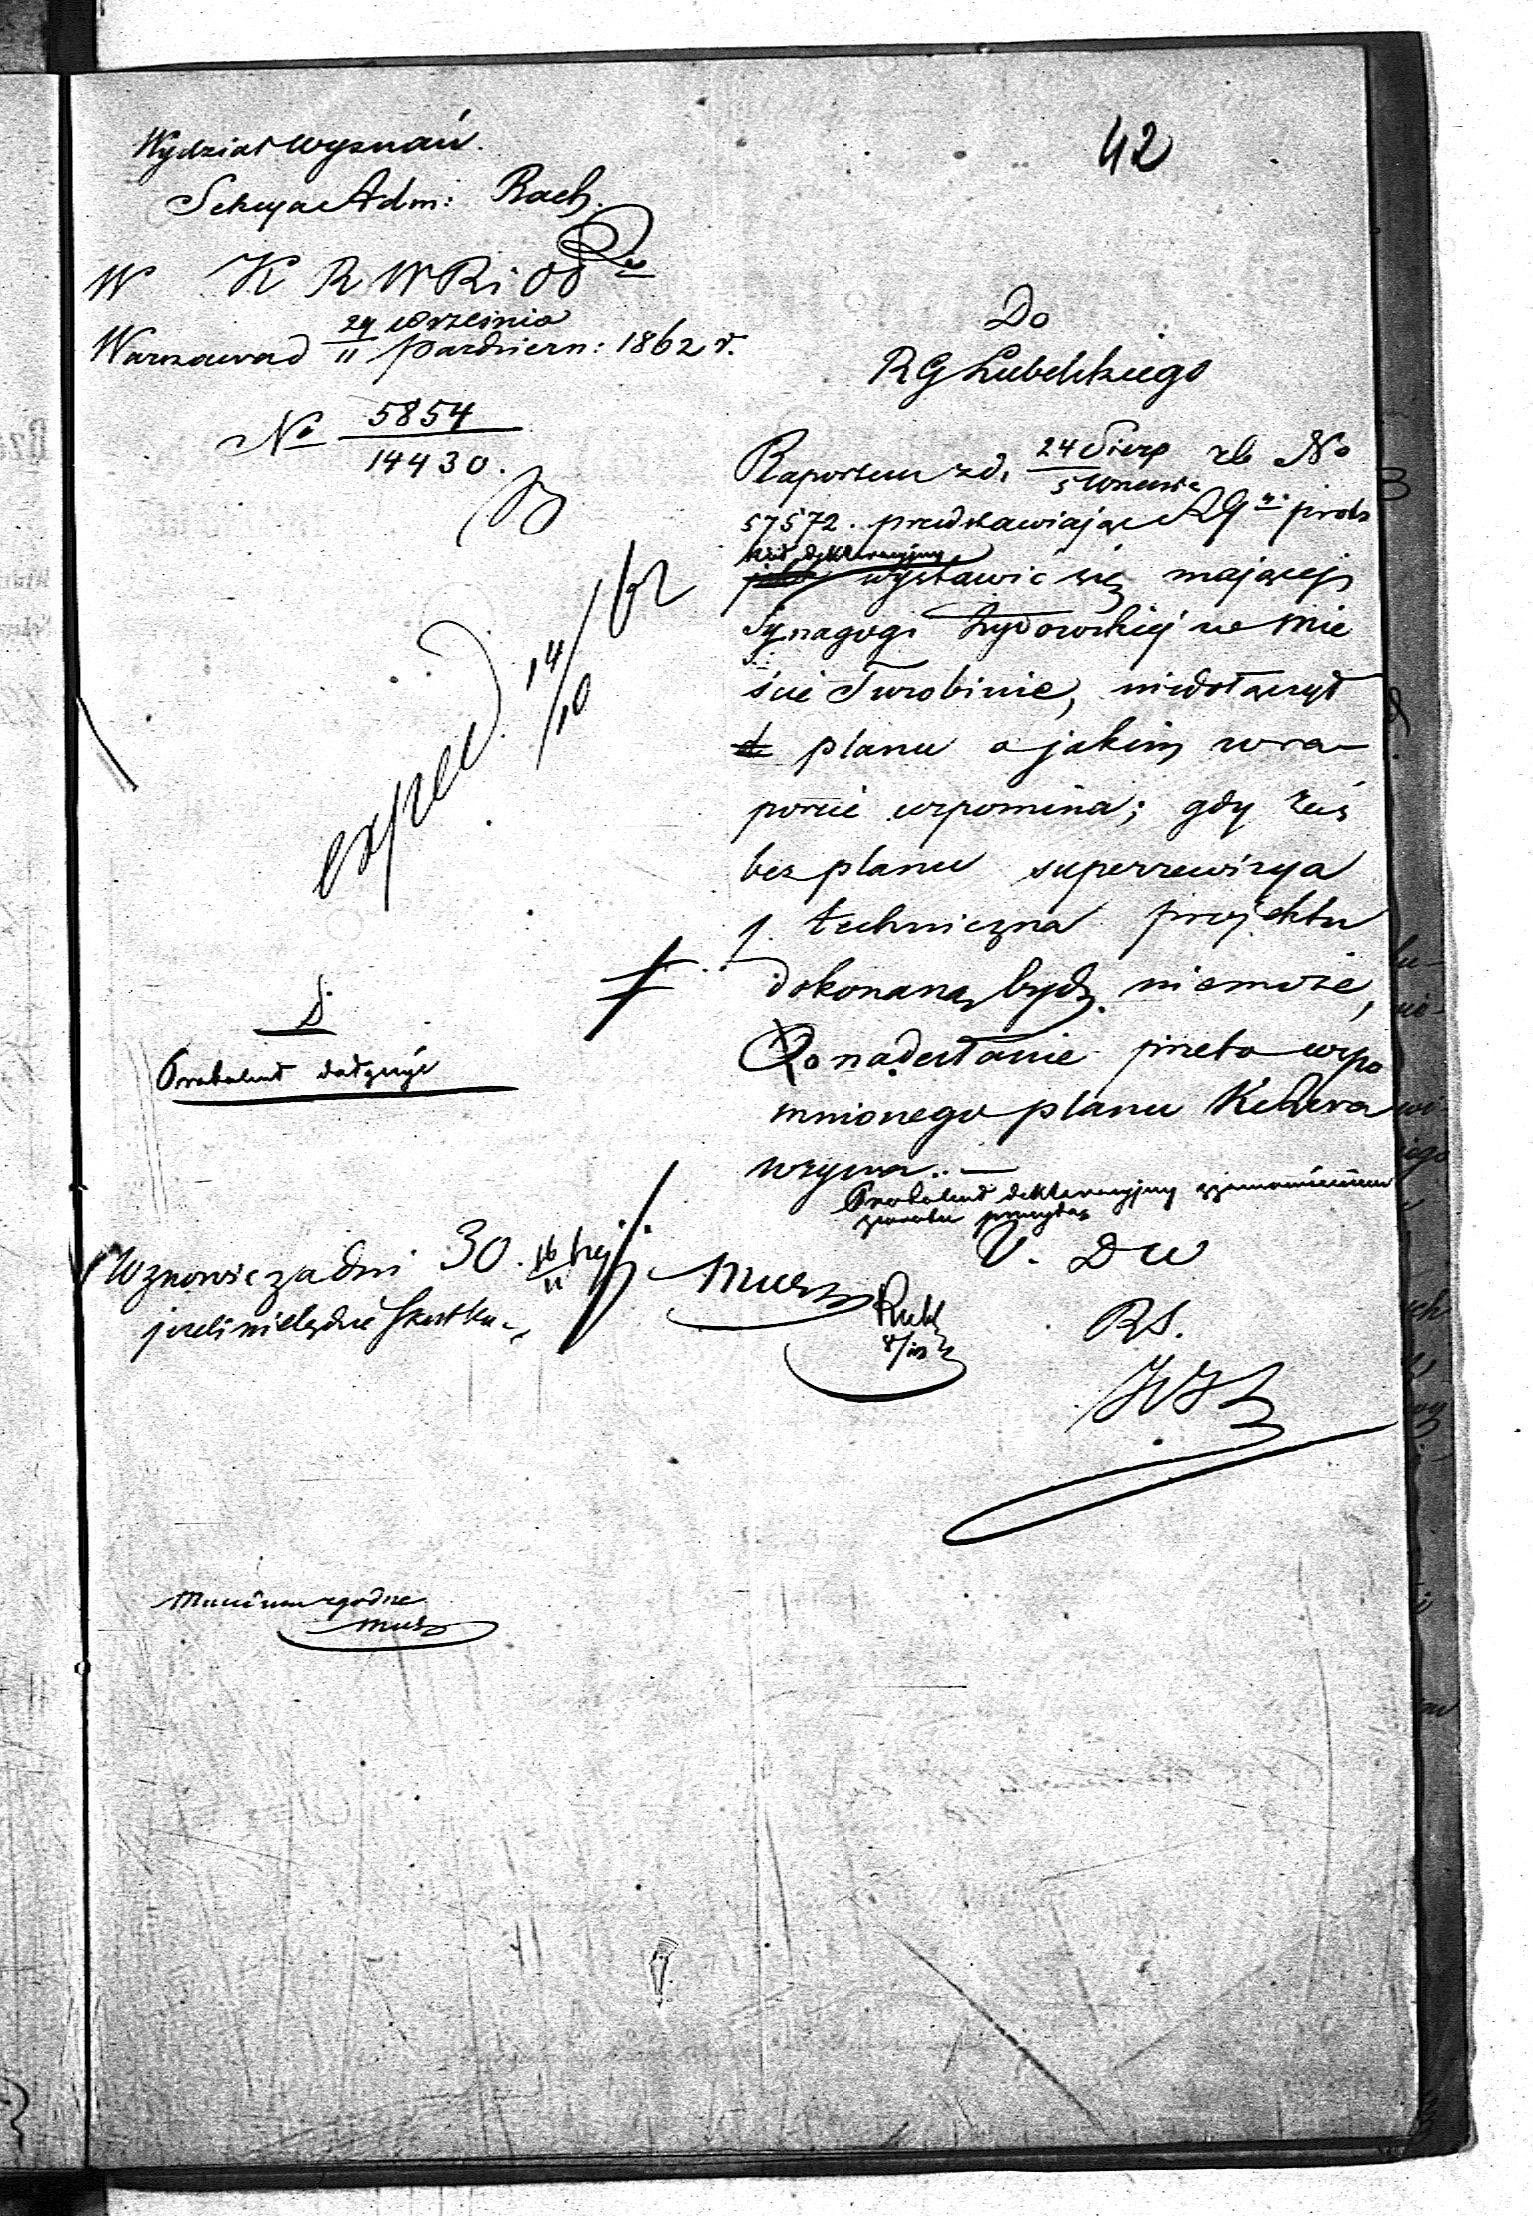 42
Wydział Wyznań.
Sekcya Adm: Rach.
W K R W R i O P
Warszawa d 29 Września
11 Październ: 1862 r.
No 5854
14430.
exped 14/10 62
Do
RG Lubelskiego
Raportem z d. 24 Sierp rb No
5 Wrześnie
57572. przedstawiając RG proto
kuł deklaracyjny
wystawić się mającej
Synagogi Żydowskiej w Mie
ście Turobinie, niedołączył
planu o jakim w ra-
porcie wspomina; gdy zaś
bez planu superrewizya
techniczna projektu
dokonaną bydź niemoże,
o nadesłanie przeto wspo
mnionego planu
wzywa. —
Protokuł deklaracyjny
zwrotu
V. D W
RS.
§
Protokuł dołączyć
Wznowić za dni 30. 16/11
jeżeli niebędzie skutku
Mundum zgodne